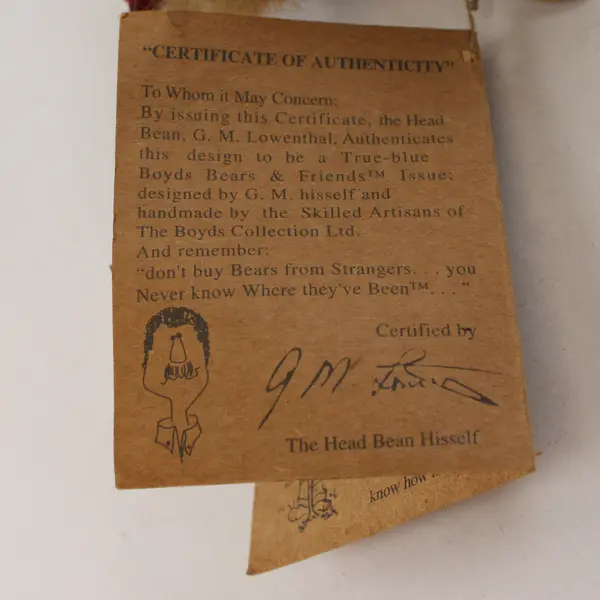 “CERTIFICATE OF AUTHENTICITY”
To Whom it May Concern:
By issuing this Certificate, the Head
Bean, G. M. Lowenthal, Authenticates
this design to be a True-blue
Boyds Bears & Friends™ Issue;
designed by G. M. hisself and
handmade by the Skilled Artisans of
The Boyds Collection Ltd.
And remember:
“don't buy Bears from Strangers. . . you
Never know Where they've Been™. . .”
Certified by
G. M. Lowenthal
The Head Bean Hisself
know how